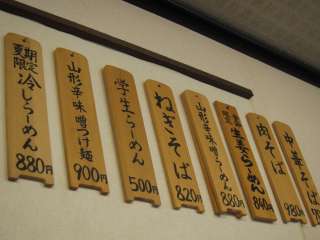 夏期限定
冷しらーめん
880円
山形辛味噌つけ麺
900円
学生らーめん
500円
ねぎそば
820円
山形辛味噌らーめん
880円
生姜らーめん
840円
肉そば
980円
中華そば